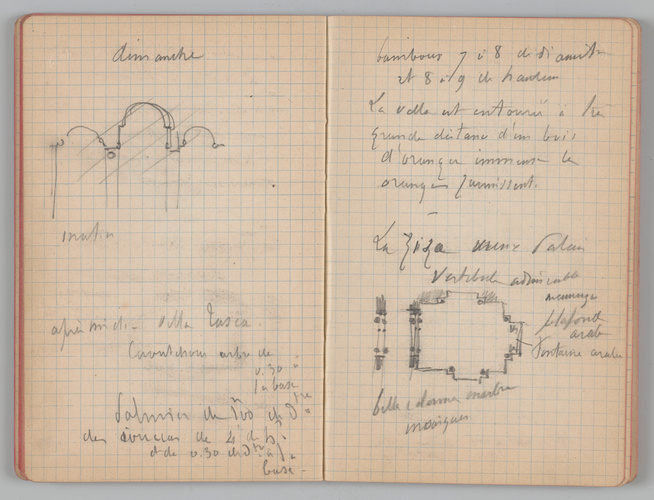 dimanche
matin
après midi - Villa Tasca.
Caoutchouc arbre de
0.30 à
la base
Palmier de
des de 4 de h.
et de 0.30 de à la
base.
bambous 7 à 8 de diamètre
et 8 à 9 de hauteur
La ville est entourée à très
grande distance d'un bois
d'oranger immense les
oranges jaunissent.
La Ziza vieux Palais
Vestibule admirable
plafond
arabe
Fontaine arabe
belle colonne marbre
mosaïques